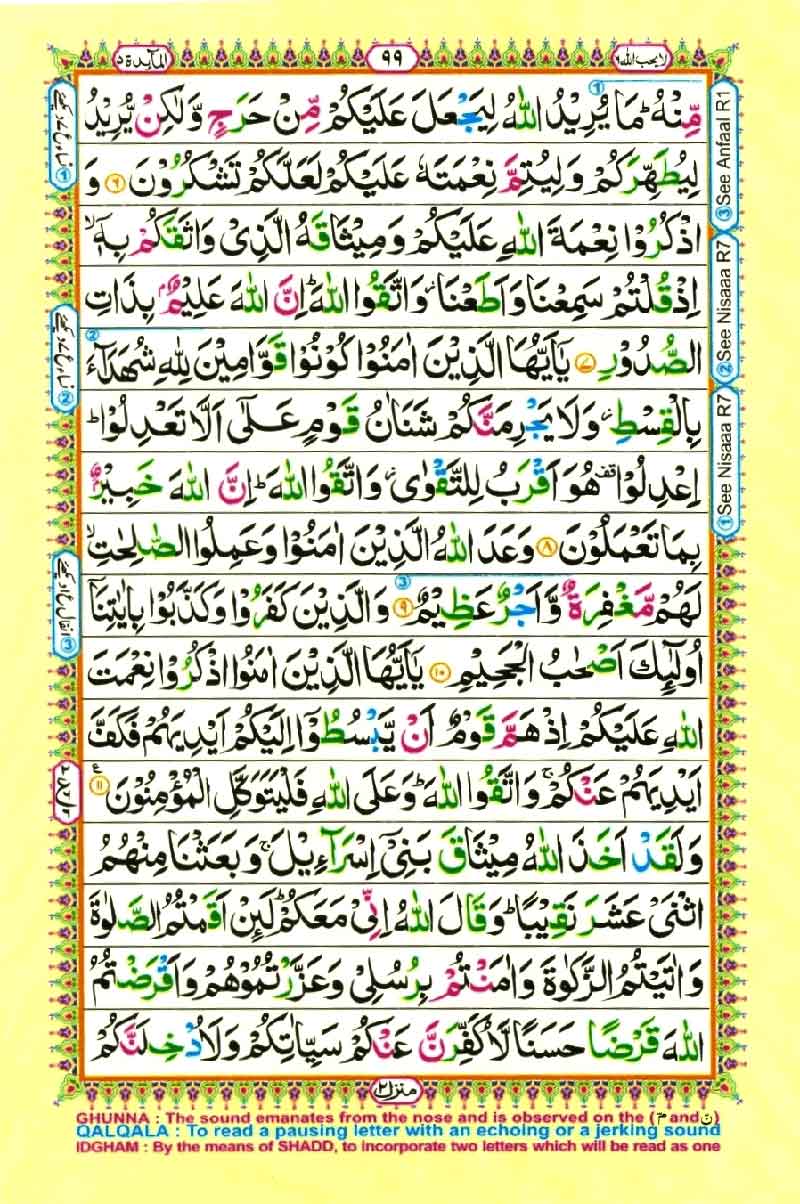 المآىِٕدة ٥
٩٩
لا يحب الله ٦
مِّنْهُ ؕ مَا يُرِيْدُ اللّٰهُ لِيَجْعَلَ عَلَيْكُمْ مِّنْ حَرَجٍ وَّلٰكِنْ يُّرِيْدُ
لِيُطَهِّرَكُمْ وَلِيُتِمَّ نِعْمَتَهٗ عَلَيْكُمْ لَعَلَّكُمْ تَشْكُرُوْنَ ۶ وَ
اذْكُرُوْا نِعْمَةَ اللّٰهِ عَلَيْكُمْ وَمِيْثَاقَهُ الَّذِىْ وَاثَقَكُمْ بِهٖۤ ۙ
اِذْ قُلْتُمْ سَمِعْنَا وَاَطَعْنَا ؗ وَاتَّقُوا اللّٰهَ ؕ اِنَّ اللّٰهَ عَلِيْمٌۢ بِذَاتِ
الصُّدُوْرِ ۷ يٰۤاَيُّهَا الَّذِيْنَ اٰمَنُوْا كُوْنُوْا قَوَّامِيْنَ لِلّٰهِ شُهَدَآءَ
بِالْقِسْطِ ؗ وَلَا يَجْرِمَنَّكُمْ شَنَاٰنُ قَوْمٍ عَلٰٓى اَلَّا تَعْدِلُوْا ؕ
اِعْدِلُوْا ۫ هُوَ اَقْرَبُ لِلتَّقْوٰى ؗ وَاتَّقُوا اللّٰهَ ؕ اِنَّ اللّٰهَ خَبِيْرٌۢ
بِمَا تَعْمَلُوْنَ ۸ وَعَدَ اللّٰهُ الَّذِيْنَ اٰمَنُوْا وَعَمِلُوا الصّٰلِحٰتِ ۙ
لَهُمْ مَّغْفِرَةٌ وَّاَجْرٌ عَظِيْمٌ ۹ وَالَّذِيْنَ كَفَرُوْا وَكَذَّبُوْا بِاٰيٰتِنَاۤ
اُولٰٓىِٕكَ اَصْحٰبُ الْجَحِيْمِ ۱۰ يٰۤاَيُّهَا الَّذِيْنَ اٰمَنُوا اذْكُرُوْا نِعْمَتَ
اللّٰهِ عَلَيْكُمْ اِذْ هَمَّ قَوْمٌ اَنْ يَّبْسُطُوْۤا اِلَيْكُمْ اَيْدِيَهُمْ فَكَفَّ
اَيْدِيَهُمْ عَنْكُمْ ۚ وَاتَّقُوا اللّٰهَ ؕ وَعَلَى اللّٰهِ فَلْيَتَوَكَّلِ الْمُؤْمِنُوْنَ ۱۱
وَلَقَدْ اَخَذَ اللّٰهُ مِيْثَاقَ بَنِىْۤ اِسْرَآءِيْلَ ۚ وَبَعَثْنَا مِنْهُمُ
اثْنَىْ عَشَرَ نَقِيْبًا ؕ وَقَالَ اللّٰهُ اِنِّىْ مَعَكُمْ ؕ لَىِٕنْ اَقَمْتُمُ الصَّلٰوةَ
وَاٰتَيْتُمُ الزَّكٰوةَ وَاٰمَنْتُمْ بِرُسُلِىْ وَعَزَّرْتُمُوْهُمْ وَاَقْرَضْتُمُ
اللّٰهَ قَرْضًا حَسَنًا لَّاُكَفِّرَنَّ عَنْكُمْ سَيِّاٰتِكُمْ وَلَاُدْخِلَنَّكُمْ
③See Anfaal R1
②See Nisaaa R7
①See Nisaaa R7
منزل ٢
GHUNNA : The sound emanates from the nose and is observed on the (نandم)
QALQALA : To read a pausing letter with an echoing or a jerking sound
IDGHAM : By the means of SHADD, to incorporate two letters which will be read as one